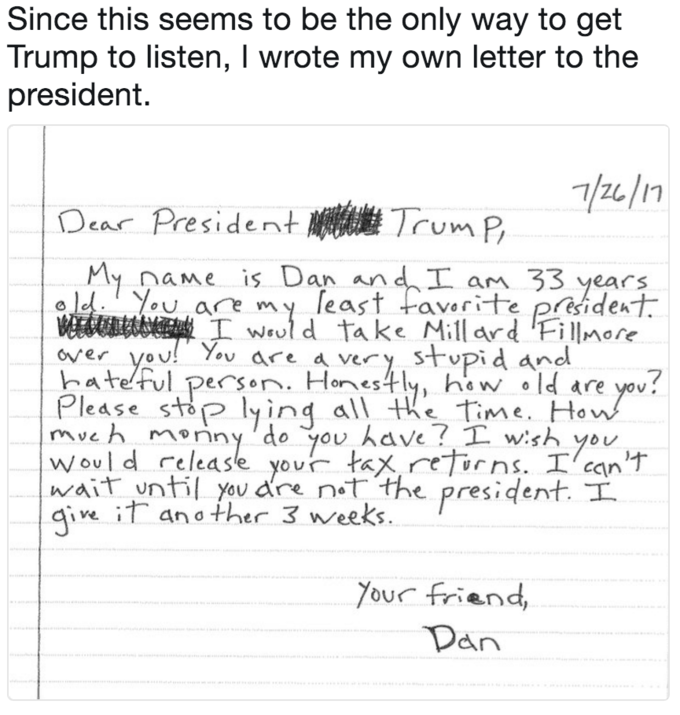 Since this seems to be the only way to get
Trump to listen, I wrote my own letter to the
president.
7/26/17
Dear President Trump,
My name is Dan and I am 33 years
old. You are my least favorite president.
I would take Millard Fillmore
over you! You are a very stupid and
hateful person. Honestly, how old are you?
Please stop lying all the time. How
much monny do you have? I wish you
would release your tax returns. I can't
wait until you are not the president. I
give it another 3 weeks.
Your friend,
Dan